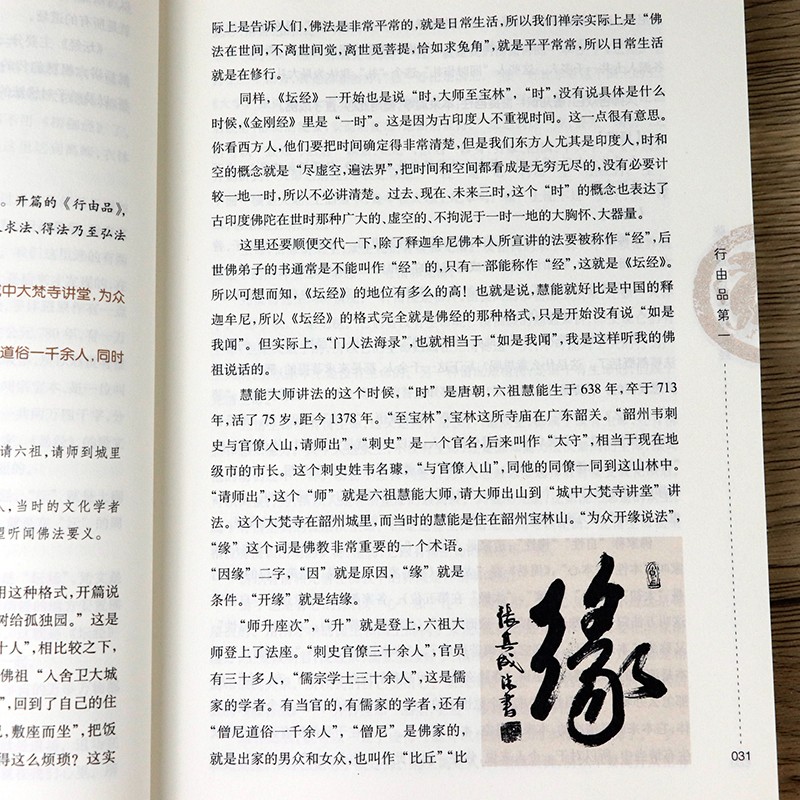 。开篇的《行由品》,
求法、得法乃至弘法
中大梵寺讲堂,为众
道俗一千余人,同时
请六祖,请师到城里
,当时的文化学者
听闻佛法要义。
用这种格式,开篇说
树给孤独园。”这是
十人”,相比较之下,
佛祖“入舍卫大城
”,回到了自己的住
,敷座而坐”,把饭
得这么烦琐?这实
际上是告诉人们,佛法是非常平常的,就是日常生活,所以我们禅宗实际上是“佛
法在世间,不离世间觉,离世觅菩提,恰如求兔角”,就是平平常常,所以日常生活
就是在修行。
同样,《坛经》一开始也是说“时,大师至宝林”,“时”,没有说具体是什么
时候,《金刚经》里是“一时”。这是因为古印度人不重视时间。这一点很有意思。
你看西方人,他们要把时间确定得非常清楚,但是我们东方人尤其是印度人,时和
空的概念就是“尽虚空,遍法界”,把时间和空间都看成是无穷无尽的,没有必要计
较一地一时,所以不必讲清楚。过去、现在、未来三时,这个“时”的概念也表达了
古印度佛陀在世时那种广大的、虚空的、不拘泥于一时一地的大胸怀、大器量。
这里还要顺便交代一下,除了释迦牟尼佛本人所宣讲的法要被称作“经”,后
世佛弟子的书通常是不能叫作“经”的,只有一部能称作“经”,这就是《坛经》。
所以可想而知,《坛经》的地位有多么的高!也就是说,慧能就好比是中国的释
迦牟尼,所以《坛经》的格式完全就是佛经的那种格式,只是开始没有说“如是
我闻”。但实际上,“门人法海录”,也就相当于“如是我闻”,我是这样听我的佛
祖说话的。
慧能大师讲法的这个时候,“时”是唐朝,六祖慧能生于 638 年,卒于 713
年,活了 75 岁,距今 1378 年。“至宝林”,宝林这所寺庙在广东韶关。“韶州韦刺
史与官僚入山,请师出”,“刺史”是一个官名,后来叫作“太守”,相当于现在地
级市的市长。这个刺史姓韦名璩,“与官僚入山”,同他的同僚一同到这山林中。
“请师出”,这个“师”就是六祖慧能大师,请大师出山到“城中大梵寺讲堂”讲
法。这个大梵寺在韶州城里,而当时的慧能是住在韶州宝林山。“为众开缘说法”,
“缘”这个词是佛教非常重要的一个术语。
“因缘”二字,“因”就是原因,“缘”就是
条件。“开缘”就是结缘。
“师升座次”,“升”就是登上,六祖大
师登上了法座。“刺史官僚三十余人”,官员
有三十多人,“儒宗学士三十余人”,这是儒
家的学者。有当官的,有儒家的学者,还有
“僧尼道俗一千余人”,“僧尼”是佛家的,
就是出家的男众和女众,也叫作“比丘”“比
缘
行由品第一
031